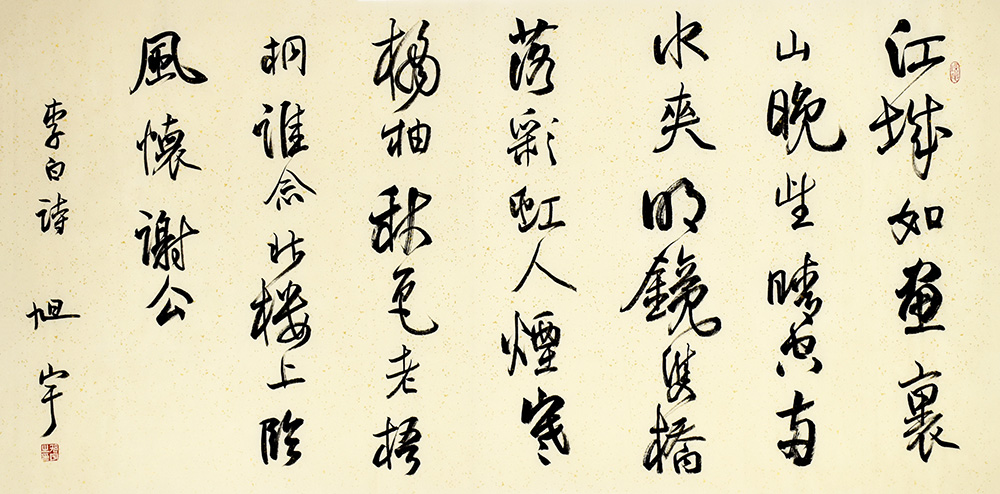 江城如畫裏
山晚望晴空兩
水夾明鏡雙橋
落彩虹人煙寒
橘柚秋色老梧
桐誰念北樓上臨
風懷謝公
李白詩 旭宇